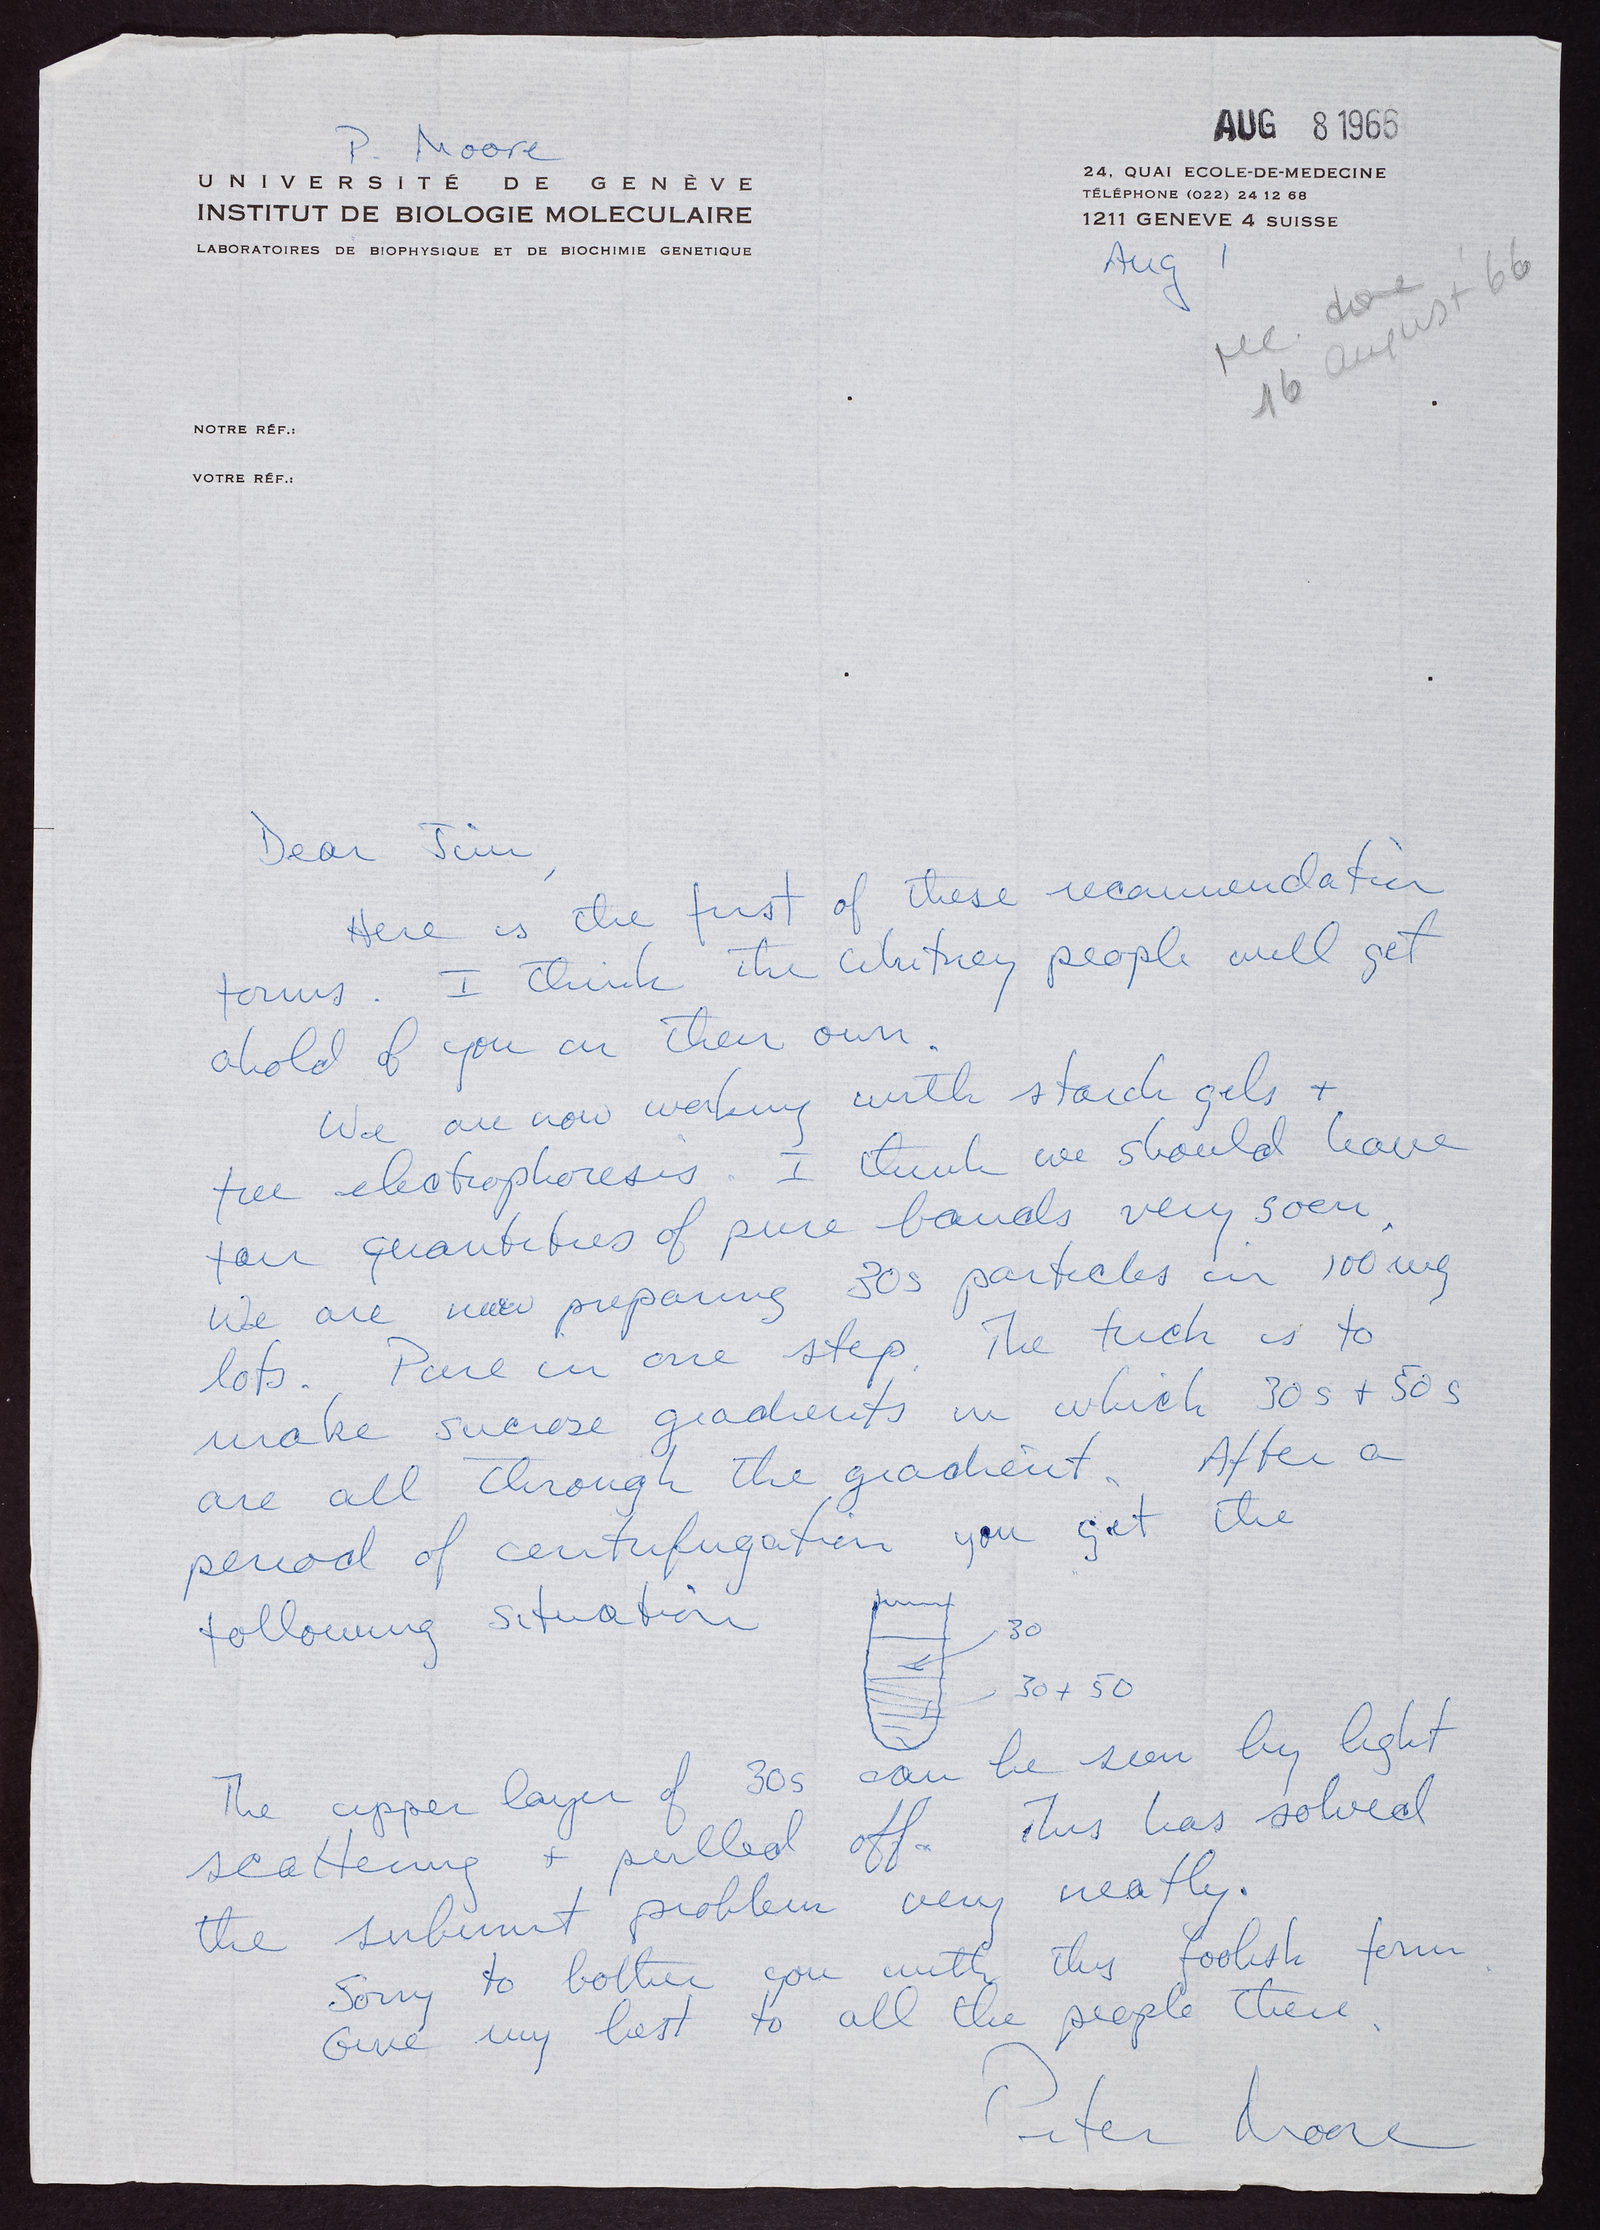 AUG 8 1966
P. Moore
UNIVERSITÉ DE GENÈVE
INSTITUT DE BIOLOGIE MOLECULAIRE
LABORATOIRES DE BIOPHYSIQUE ET DE BIOCHIMIE GENETIQUE
24, QUAI ECOLE-DE-MEDECINE
TÉLÉPHONE (022) 24 12 68
1211 GENEVE 4 SUISSE
Aug 1
rec. done
16 august '66
NOTRE RÉF.:
VOTRE RÉF.:
Dear Jim,
Here is the first of these recommendation
forms. I think the Whitney people will get
ahold of you on their own.
We are now working with starch gels +
free electrophoresis. I think we should have
fair quantities of pure bands very soon.
We are now preparing 30s particles in 100 mg
lots. Pure in one step. The trick is to
make sucrose gradients in which 30s + 50s
are all through the gradient. After a
period of centrifugation you get the
following situation
30
30 + 50
The upper layer of 30s can be seen by light
scattering + pulled off. This has solved
the subunit problem very neatly.
Sorry to bother you with this foolish form.
Give my best to all the people there.
Peter Moore